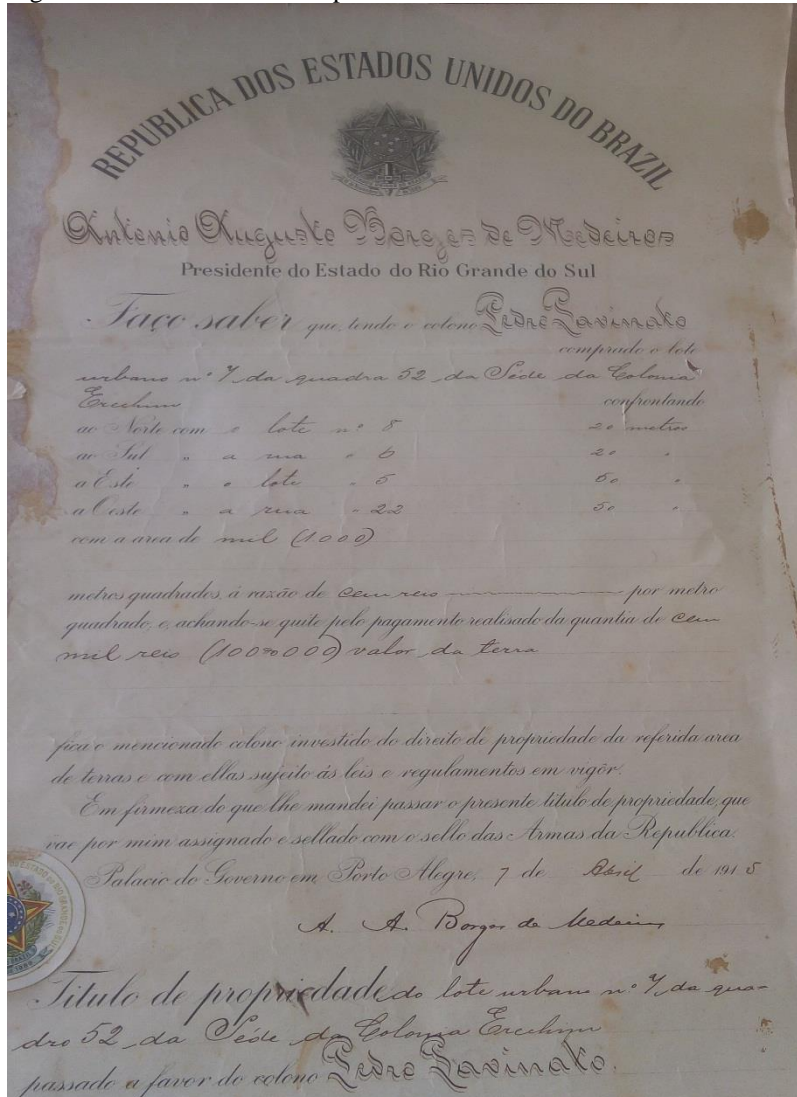 REPUBLICA DOS ESTADOS UNIDOS DO BRAZIL
Antonio Augusto Borges de Medeiros
Presidente do Estado do Rio Grande do Sul
Faço saber que, tendo o colono Pedro Pavinato
comprado o lote
urbano nº 7 da quadra 52 da Séde da Colonia
Erechim confrontando
ao Norte com o lote nº 8 20 metros
ao Sul " a rua " 6 20 "
a Este " o lote " 5 50 "
a Oeste " a rua " 22 50 "
com a area de mil (1000)
metros quadrados, á razão de cem reis por metro
quadrado, e, achando-se quite pelo pagamento realisado da quantia de cem
mil reis (100$000) valor da terra
fica o mencionado colono investido do direito de propriedade da referida area
de terras e com ellas sujeito ás leis e regulamentos em vigôr.
Em firmeza do que lhe mandei passar o presente titulo de propriedade, que
vae por mim assignado e sellado com o sello das Armas da Republica.
Palacio do Governo em Porto Alegre, 7 de Abril de 1915
A. A. Borges de Medeiros
Titulo de propriedade do lote urbano nº 7, da qua-
dra 52, da Séde da Colonia Erechim
passado a favor do colono Pedro Pavinato.